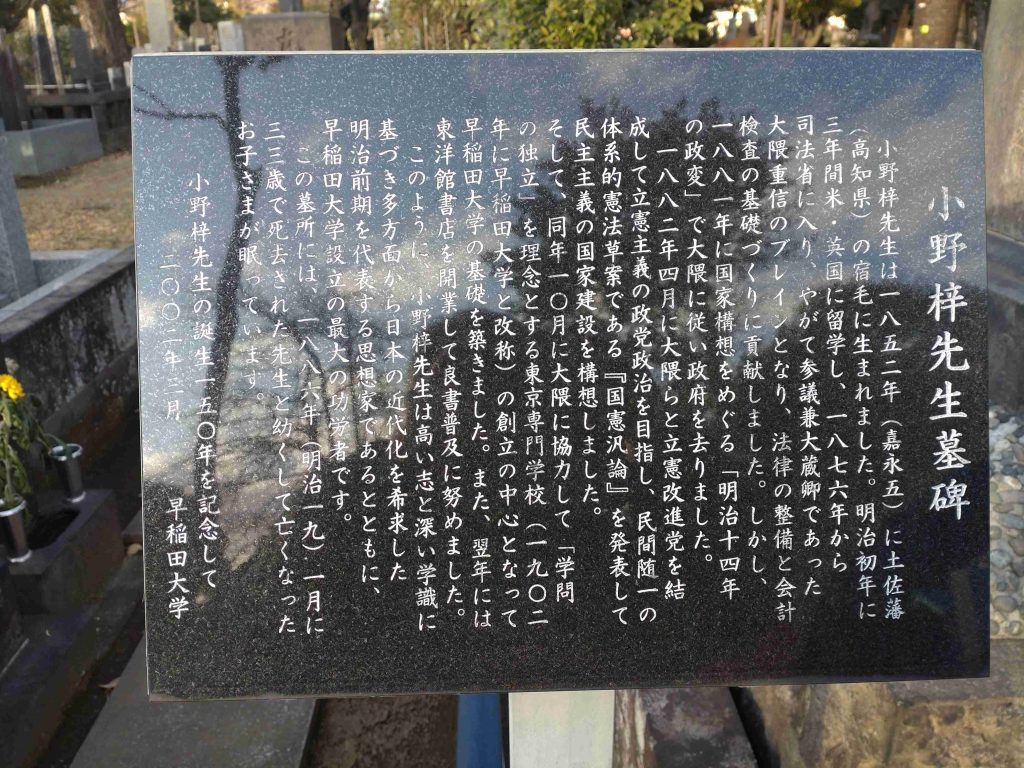 小野梓先生墓碑
小野梓先生は一八五二年（嘉永五）に土佐藩
（高知県）の宿毛に生まれました。明治初年に
三年間米・英国に留学し、一八七六年から
司法省に入り、やがて参議兼大蔵卿であった
大隈重信のブレインとなり、法律の整備と会計
検査の基礎づくりに貢献しました。しかし、
一八八一年に国家構想をめぐる「明治十四年
の政変」で大隈に従い政府を去りました。
一八八二年四月に大隈らと立憲改進党を結
成して立憲主義の政党政治を目指し、民間随一の
体系的憲法草案である『国憲汎論』を発表して
民主主義の国家建設を構想しました。
そして、同年一〇月に大隈に協力して「学問
の独立」を理念とする東京専門学校（一九〇二
年に早稲田大学と改称）の創立の中心となって
早稲田大学の基礎を築きました。また、翌年には
東洋館書店を開業して良書普及に努めました。
このように、小野梓先生は高い志と深い学識に
基づき多方面から日本の近代化を希求した
明治前期を代表する思想家であるとともに、
早稲田大学設立の最大の功労者です。
この墓所には、一八八六年（明治一九）一月に
三三歳で死去された先生と幼くして亡くなった
お子さまが眠っています。
小野梓先生の誕生一五〇年を記念して
二〇〇二年三月
早稲田大学